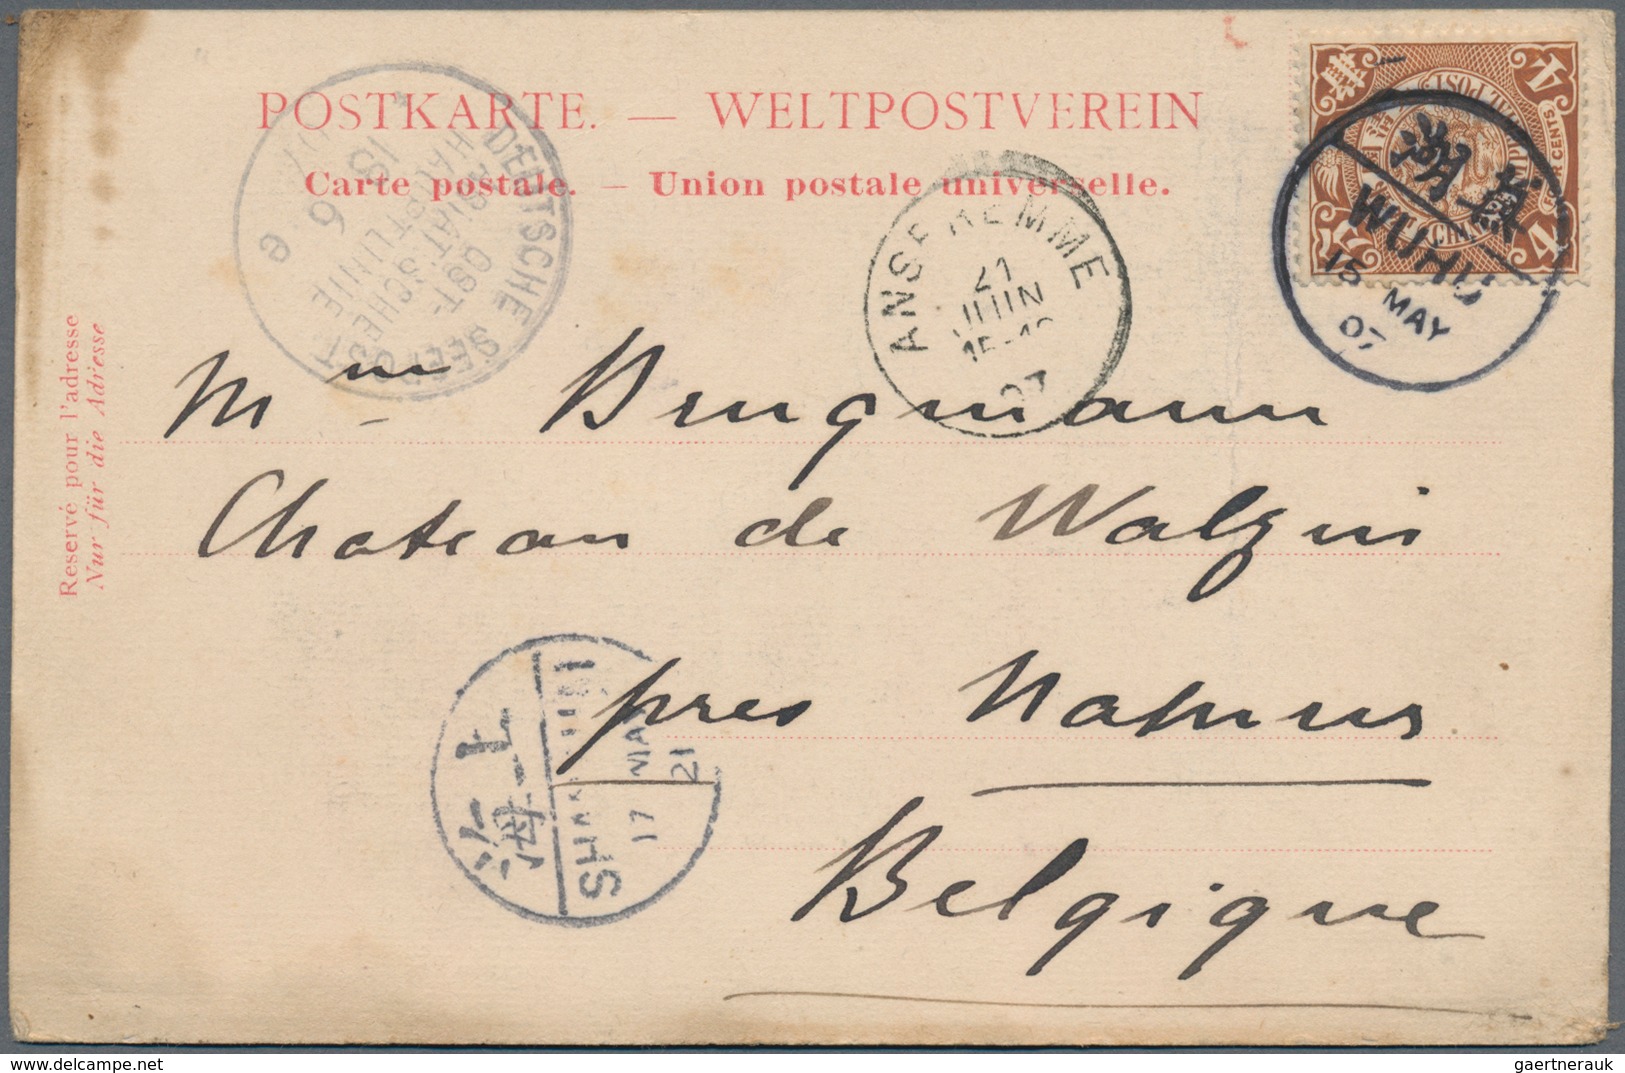 POSTKARTE. — WELTPOSTVEREIN
Carte postale. — Union postale universelle.
Reservé pour l'adresse
Nur für die Adresse
DEUTSCHE SEEPOST
OST-
ASIATISCHE
HAUPTLINIE
e
ANSEREMME
21
JUIN
07
4
CENTS
4
蕪湖
WUHU
15 MAY
07
Mme Brugmann
Chateau de Walzin
près Namur
Belgique
上海
SHANGHAI
17 MAY
21
gaertnerauk